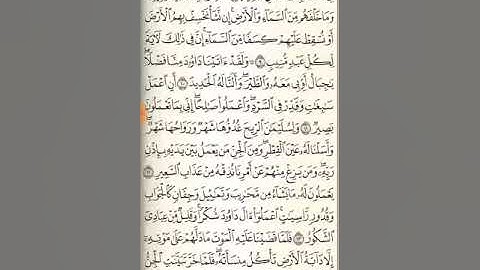 وَمَا خَلْفَهُم مِّنَ ٱلسَّمَآءِ وَٱلْأَرْضِ ۚ إِن نَّشَأْ نَخْسِفْ بِهِمُ ٱلْأَرْضَ
أَوْ نُسْقِطْ عَلَيْهِمْ كِسَفًا مِّنَ ٱلسَّمَآءِ ۚ إِنَّ فِى ذَٰلِكَ لَءَايَةً
لِّكُلِّ عَبْدٍ مُّنِيبٍ ۝٩ وَلَقَدْ ءَاتَيْنَا دَاوُۥدَ مِنَّا فَضْلًا ۖ
يَٰجِبَالُ أَوِّبِى مَعَهُۥ وَٱلطَّيْرَ ۖ وَأَلَنَّا لَهُ ٱلْحَدِيدَ ۝١٠ أَنِ ٱعْمَلْ
سَٰبِغَٰتٍ وَقَدِّرْ فِى ٱلسَّرْدِ ۖ وَٱعْمَلُوا۟ صَٰلِحًا ۖ إِنِّى بِمَا تَعْمَلُونَ
بَصِيرٌ ۝١١ وَلِسُلَيْمَٰنَ ٱلرِّيحَ غُدُوُّهَا شَهْرٌ وَرَوَاحُهَا شَهْرٌ ۖ
وَأَسَلْنَا لَهُۥ عَيْنَ ٱلْقِطْرِ ۖ وَمِنَ ٱلْجِنِّ مَن يَعْمَلُ بَيْنَ يَدَيْهِ بِإِذْنِ
رَبِّهِۦ ۖ وَمَن يَزِغْ مِنْهُمْ عَنْ أَمْرِنَا نُذِقْهُ مِنْ عَذَابِ ٱلسَّعِيرِ ۝١٢
يَعْمَلُونَ لَهُۥ مَا يَشَآءُ مِن مَّحَٰرِيبَ وَتَمَٰثِيلَ وَجِفَانٍ كَٱلْجَوَابِ
وَقُدُورٍ رَّاسِيَٰتٍ ۚ ٱعْمَلُوٓا۟ ءَالَ دَاوُۥدَ شُكْرًا ۚ وَقَلِيلٌ مِّنْ عِبَادِىَ
ٱلشَّكُورُ ۝١٣ فَلَمَّا قَضَيْنَا عَلَيْهِ ٱلْمَوْتَ مَا دَلَّهُمْ عَلَىٰ مَوْتِهِۦٓ
إِلَّا دَآبَّةُ ٱلْأَرْضِ تَأْكُلُ مِنسَأَتَهُۥ ۖ فَلَمَّا خَرَّ تَبَيَّنَتِ ٱلْجِنُّ